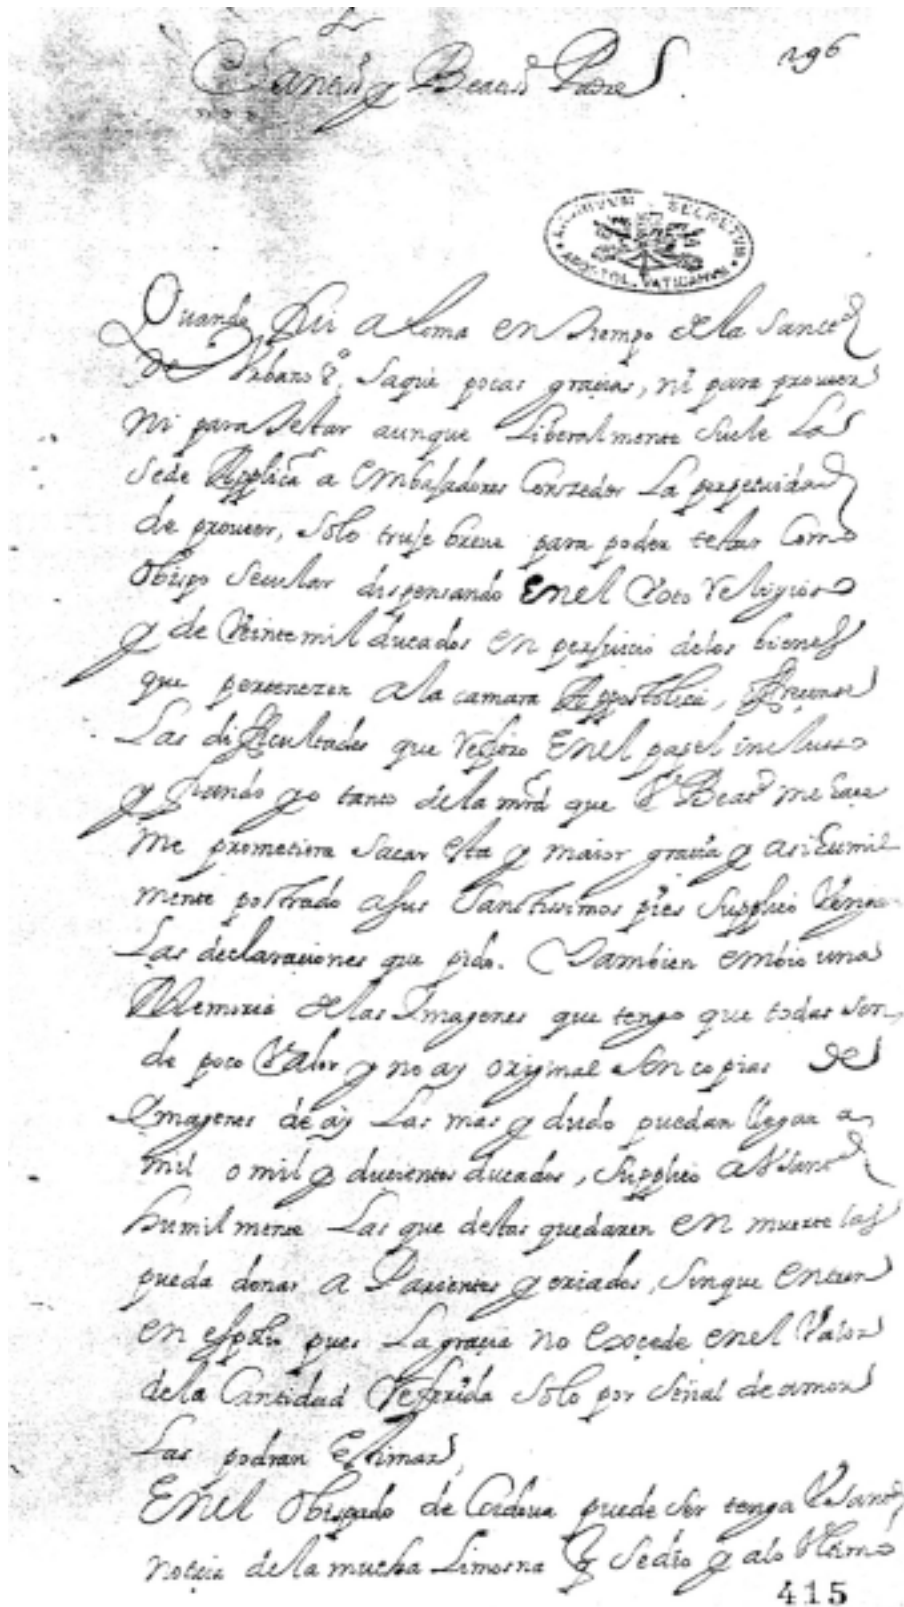 296
Sancto y Beatto Padre
ARCHIVUM SECRETUM APOSTOL. VATICANUM
Quando fui a Roma en tiempo de la Sanctd
de Urbano 8º, saqué pocas gracias, ni para proueer
ni para testar aunque liberalmente suele la
sede Applica a embassadores conzeder la perpetuidad
de proueer, solo truje breue para poder testar como
Obispo secular dispensando en el voto religioso
y de veinte mil ducados en perjuicio de los bienes
que pertenezen a la camara Appostolica,
Las dificultades que refiero en el papel incluso
y fiando yo tanto de la mrd que Vª Beatd me haze
me prometiera sacar esta y maior gracia y asi humil
mente postrado a sus Sanctissimos pies supplico venga
Las declaraciones que pido. Tambien embio una
Memoria de las Imagenes que tengo que todas son
de poco valor y no ay original son copias de
Imagenes de ay las mas y dudo puedan llegar a
mil o mil y ducientos ducados, supplico a V Sanctd
humilmente las que destas quedaren en muerte las
pueda donar a Parientes y criados, sin que entren
en espolio pues la gracia no excede en el valor
de la Cantidad referida solo por señal de amor
Las podran estimar,
En el Obispado de Cordoua puede ser tenga V Sanctd
noticia de la mucha Limosna q se dio y a lo ultimo
415